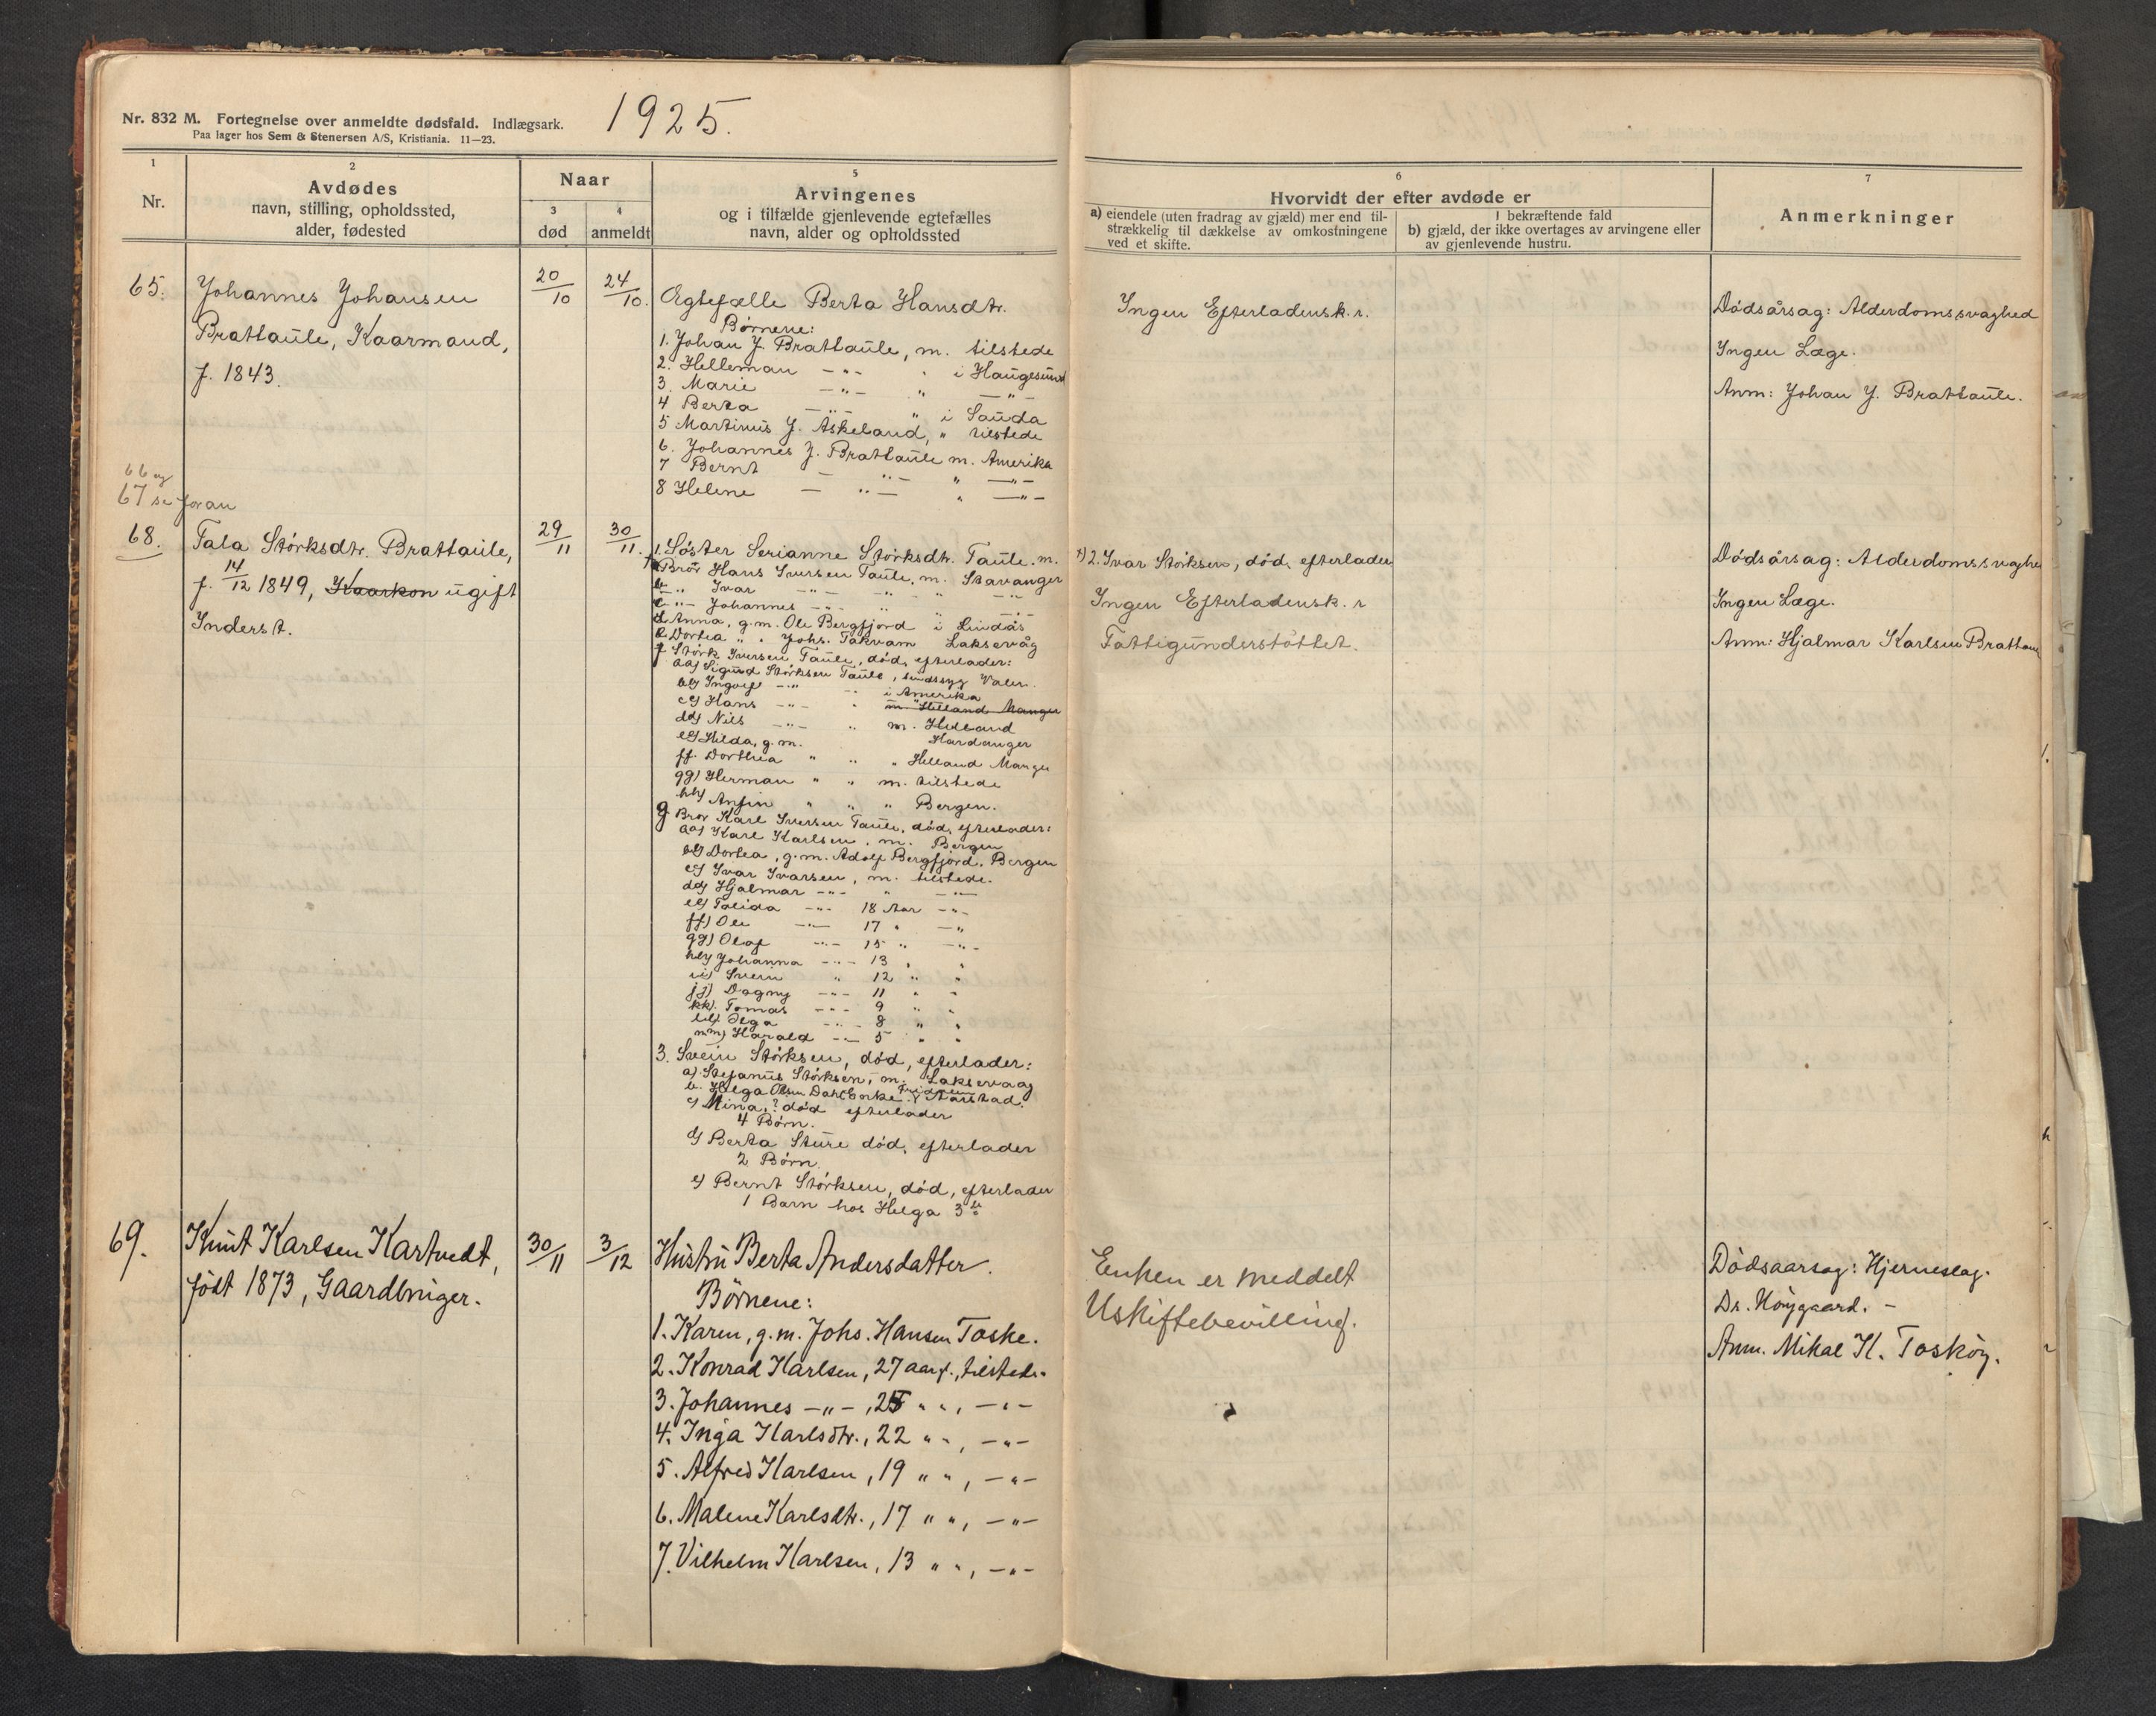 Nr. 832 M. Fortegnelse over anmeldte dødsfald. Indlægsark.
Paa lager hos Sem & Stenersen A/S, Kristiania. 11—23.
1925.
1
Nr.
2
Avdødes
navn, stilling, opholdssted,
alder, fødested
Naar
3
død
4
anmeldt
5
Arvingenes
og i tilfælde gjenlevende egtefælles
navn, alder og opholdssted
6
Hvorvidt der efter avdøde er
a) eiendele (uten fradrag av gjæld) mer end til-
strækkelig til dækkelse av omkostningene
ved et skifte.
I bekræftende fald
b) gjæld, der ikke overtages av arvingene eller
av gjenlevende hustru.
7
Anmerkninger
65.
Johannes Johansen
Brattaule, Kaarmand,
f. 1843.
20/10
24/10.
Egtefælle Berta Hansdtr.
Børnene:
1. Johan J. Brattaule, m. tilstede
2. Helleman -"- " i Haugesund
3. Marie -"- " -"-
4 Berta -"- " i Sauda
5 Martinus J. Askeland, " tilstede
6. Johannes J. Brattaule m. Amerika
7 Bernt -"- " -"-
8 Helene -"- " -"-
Ingen Efterladensk.r.
Dödsårsag: Alderdomssvaghed
Ingen Læge.
Anm: Johan J. Brattaule.
66 og
67 se foran
68.
Tala Störksdtr. Brattaule,
f. 14/12 1849, Kaarkon ugift
Inderst.
29/11
30/11.
1. Söster Serianne Störksdtr. Taule. m.
Bror Hans Iversen Taule, m. Stavanger
b " Ivar -"- -"- " -"-
c -"- Johannes -"- " " -"-
d Anna, g.m. Ole Bergfjord i Lindås
e Dortea " " Johs. Takvam Laksevåg
f Störk Iversen Taule, död, efterlader:
aa) Sigurd Störksen Taule, sindssyg Valen.
bb) Ingolf -"- -"- i Amerika
cc) Hans -"- " m. Helland Manger
dd) Nils -"- " m. Helland
ee) Hilda, g.m. Hardanger
ff. Dorthea " " " Helland Manger
gg) Herman " " m. tilstede
hh) Anfin " " " Bergen.
g Bror Karl Iversen Taule, död, efterlader:
aa) Karl Karlsen, m. Bergen
bb) Dortea, g.m. Adolf Bergfjord, Bergen
cc) Ivar Ivarsen, m. tilstede.
dd) Hjalmar -"- " -"-
ee) Talida -"- 18 Aar -"-
ff) Ole -"- 17 " -"
gg) Olaf -"- 15 " -"-
hh) Johanna -"- 13 " "
ii) Svein " 12 " "
jj) Dagny -"- 11 " "
kk). Tomas -"- 9 " "
ll) Olga -"- 8 " "
mm) Harald -"- 5 " "
3. Svein Störksen, död, efterlader:
a) Stefanus Störksen, m. Laksevaag
b. Helga Olsen Dahl Enke
c) Mina, ? död efterlader
4 Börn.
d) Berta Sture död, efterlader
2 Börn.
e) Bernt Störksen, död, efterlader
1 Barn hos Helga 3 b
2. Ivar Störksen, död, efterlader
Ingen Efterladensk.r
Fattigunderstöttet.
Dödsårsag: Alderdomssvaghe
Ingen Læge.
Anm: Hjalmar Karlsen Brattaul
69.
Knut Karlsen Kartvedt,
født 1873, Gaardbruger.
30/11
3/12
Hustru Berta Andersdatter.
Børnene:
1. Karen, g.m. Johs. Hansen Toske.
2. Konrad Karlsen, 27 aar g., tilstede.
3. Johannes -"-, 25 " ", -"-
4. Inga Karlsdtr., 22 " ", -"-
5. Alfred Karlsen, 19 " ", -"-
6. Malene Karlsdtr., 17 " ", -"-
7. Vilhelm Karlsen, 13 " ", -"-
Enken er meddelt
Uskiftebevilling.
Dödsaarsag: Hjerneslag.
Dr. Höygaard. -
Anm. Mikal K. Toskøy.